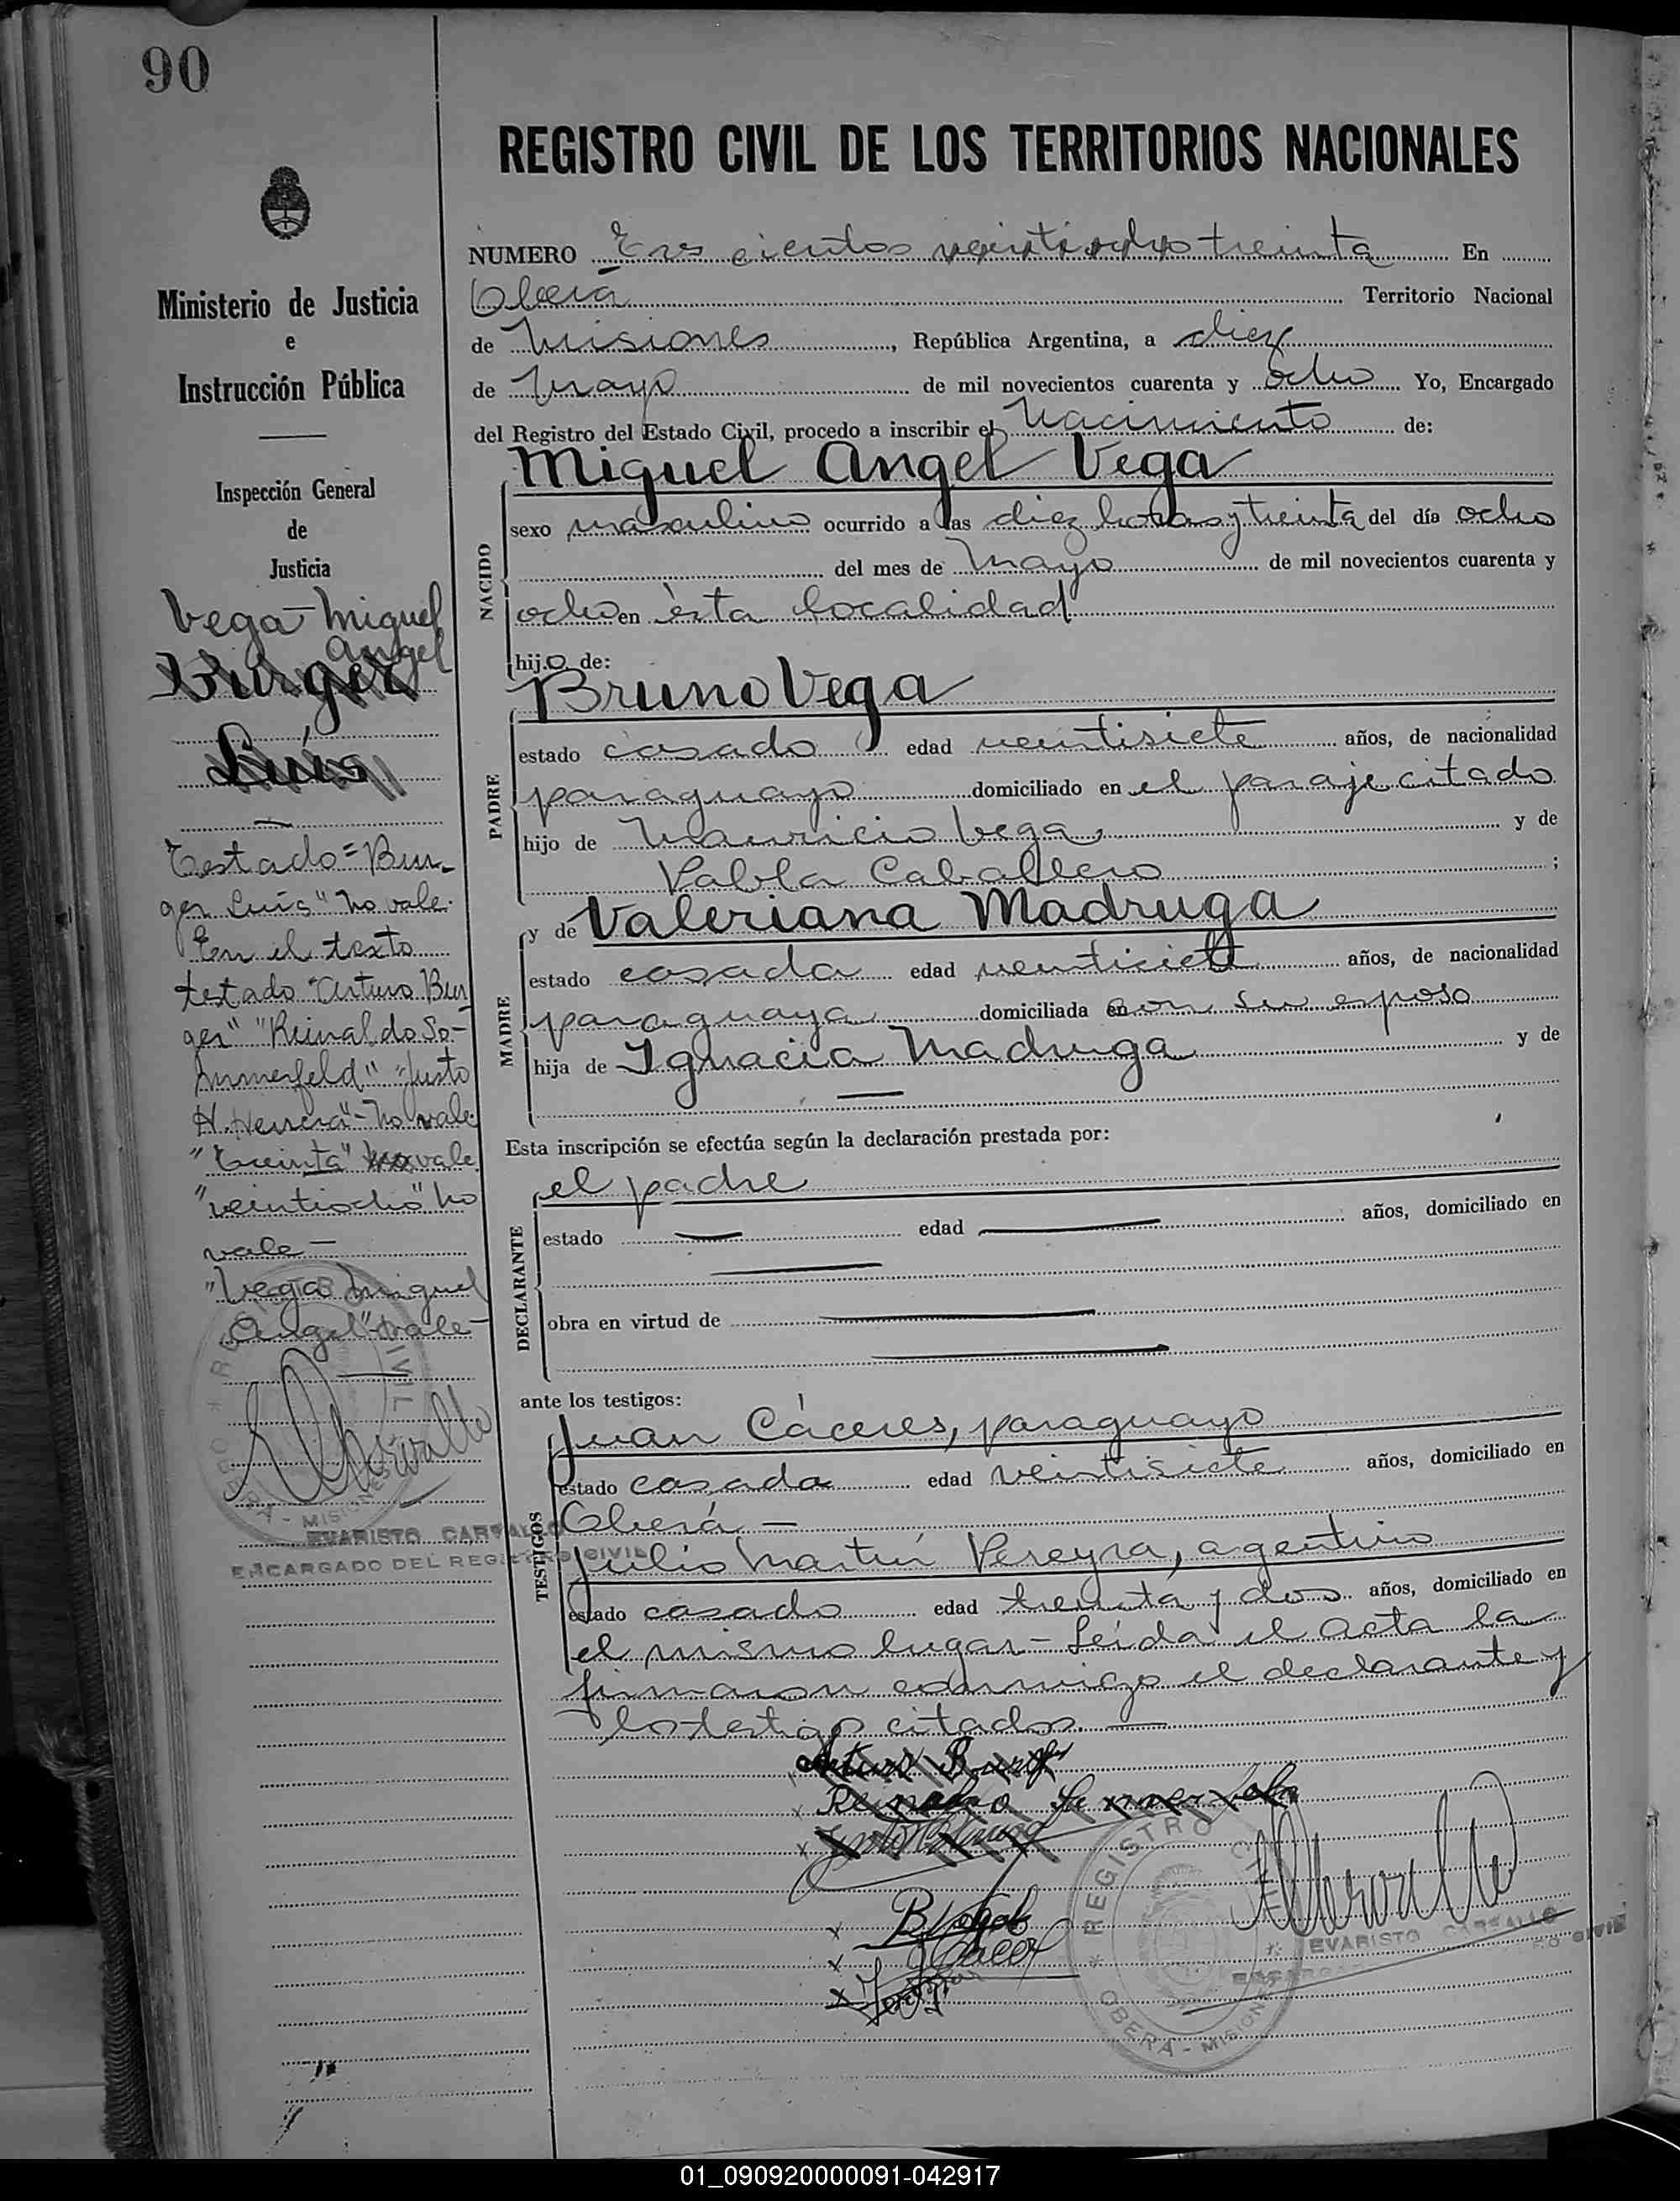 90
REGISTRO CIVIL DE LOS TERRITORIOS NACIONALES
Ministerio de Justicia
e
Instrucción Pública
Inspección General
de
Justicia
Vega Miguel
Angel
Burger
Luis
Testado = Bur-
ger Luis" no vale.
En el texto
testado "Arturo Bur
ger" "Reinaldo So-
mmerfeld" "Justo
H. Herrera" - no vale
"treinta" vale
"veintiocho" no
vale -
"Vega Miguel
Angel" vale -
EVARISTO CARVALLO
ENCARGADO DEL REGISTRO CIVIL
NUMERO Tres cientos veintiocho treinta En
Oberá Territorio Nacional
de Misiones, República Argentina, a diez
de mayo de mil novecientos cuarenta y ocho Yo, Encargado
del Registro del Estado Civil, procedo a inscribir el Nacimiento de:
Miguel Angel Vega
NACIDO
sexo masculino ocurrido a las diez horas y treinta del día ocho
del mes de Mayo de mil novecientos cuarenta y
ocho en ésta localidad
hijo de:
Bruno Vega
PADRE
estado casado edad veintisiete años, de nacionalidad
paraguayo domiciliado en el paraje citado
hijo de Mauricio Vega y de
Pabla Caballero ;
y de Valeriana Madruga
MADRE
estado casada edad venticiete años, de nacionalidad
paraguaya domiciliada en con su esposo
hija de Ignacia Madruga y de
Esta inscripción se efectúa según la declaración prestada por:
el padre
DECLARANTE
estado edad años, domiciliado en
obra en virtud de
ante los testigos:
Juan Cáceres, paraguayo
TESTIGOS
estado casado edad veintisiete años, domiciliado en
Oberá -
Julio Martín Pereyra, agentino
estado casado edad treinta y dos años, domiciliado en
el mismo lugar - Leída el acta la
firmaron conmigo el declarante y
los testigos citados. -
Arturo Burger
Reinaldo Sommerfeld
B Vega
J Cacer
REGISTRO CIVIL
OBERÁ - MISIONES
EVARISTO CARVALLO
01_090920000091-042917